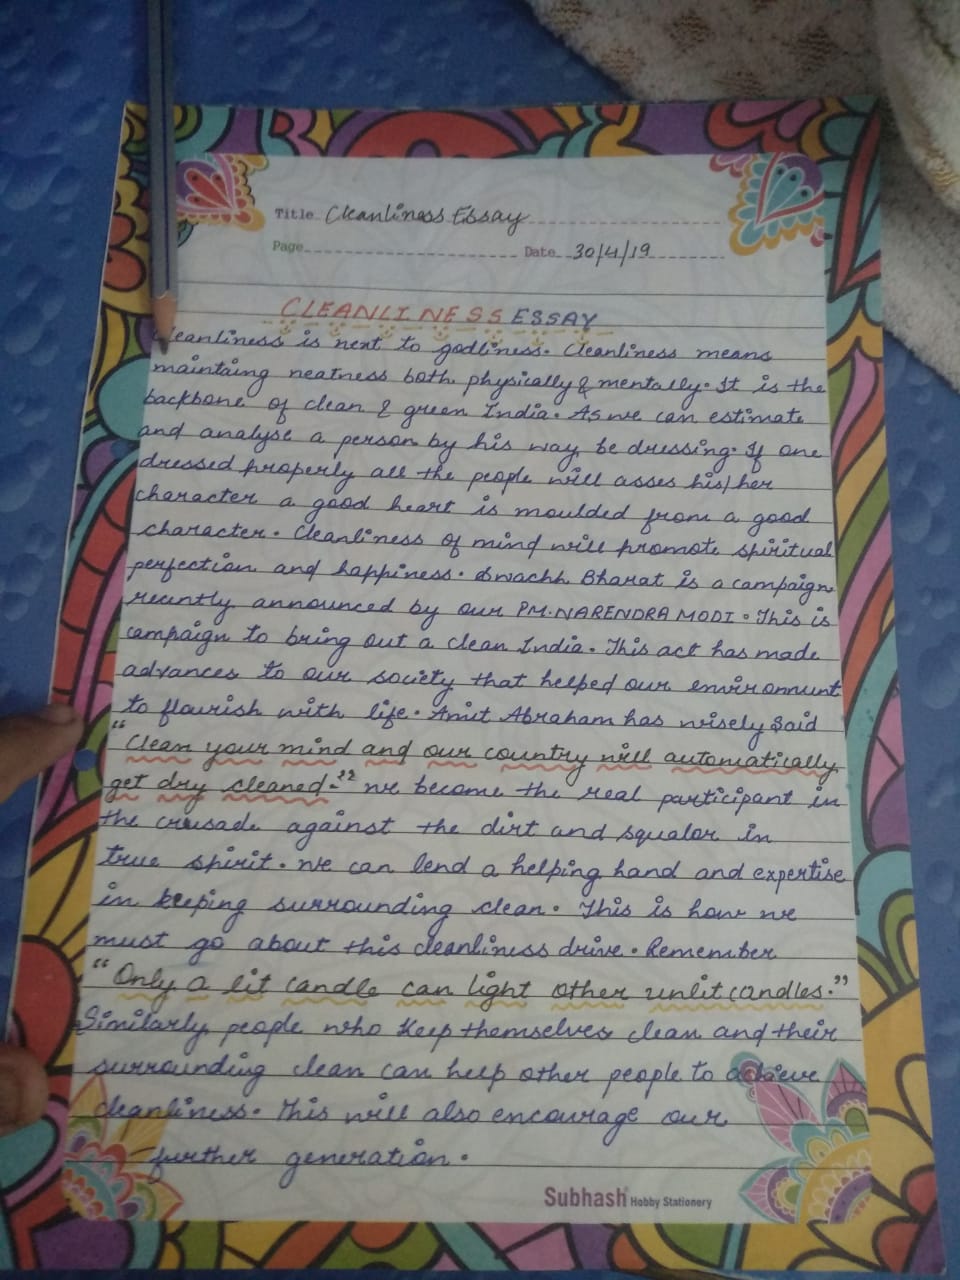 Title Cleanliness Essay
Page Date 30/4/19
CLEANLINESS ESSAY
Cleanliness is next to godliness. Cleanliness means
maintaing neatness both physically & mentally. It is the
backbone of clean & green India. As we can estimate
and analyse a person by his way be dressing. If one
dressed properly all the people will asses his/her
character a good heart is moulded from a good
character. Cleanliness of mind will promote spiritual
perfection and happiness. Swachh Bharat is a campaign
recently announced by our PM.NARENDRA MODI. This is
campaign to bring out a clean India. This act has made
advances to our society that helped our environment
to flourish with life. Amit Abraham has wisely said
"Clean your mind and our country will automatically
get dry cleaned." we become the real participant in
the crusade against the dirt and squalor in
true spirit. we can lend a helping hand and expertise
in keeping surrounding clean. This is how we
must go about this cleanliness drive. Remember
"Only a lit candle can light other unlit candles."
Similarly people who keep themselves clean and their
surrounding clean can help other people to achieve
cleanliness. This will also encourage our
further generation.
Subhash Hobby Stationery